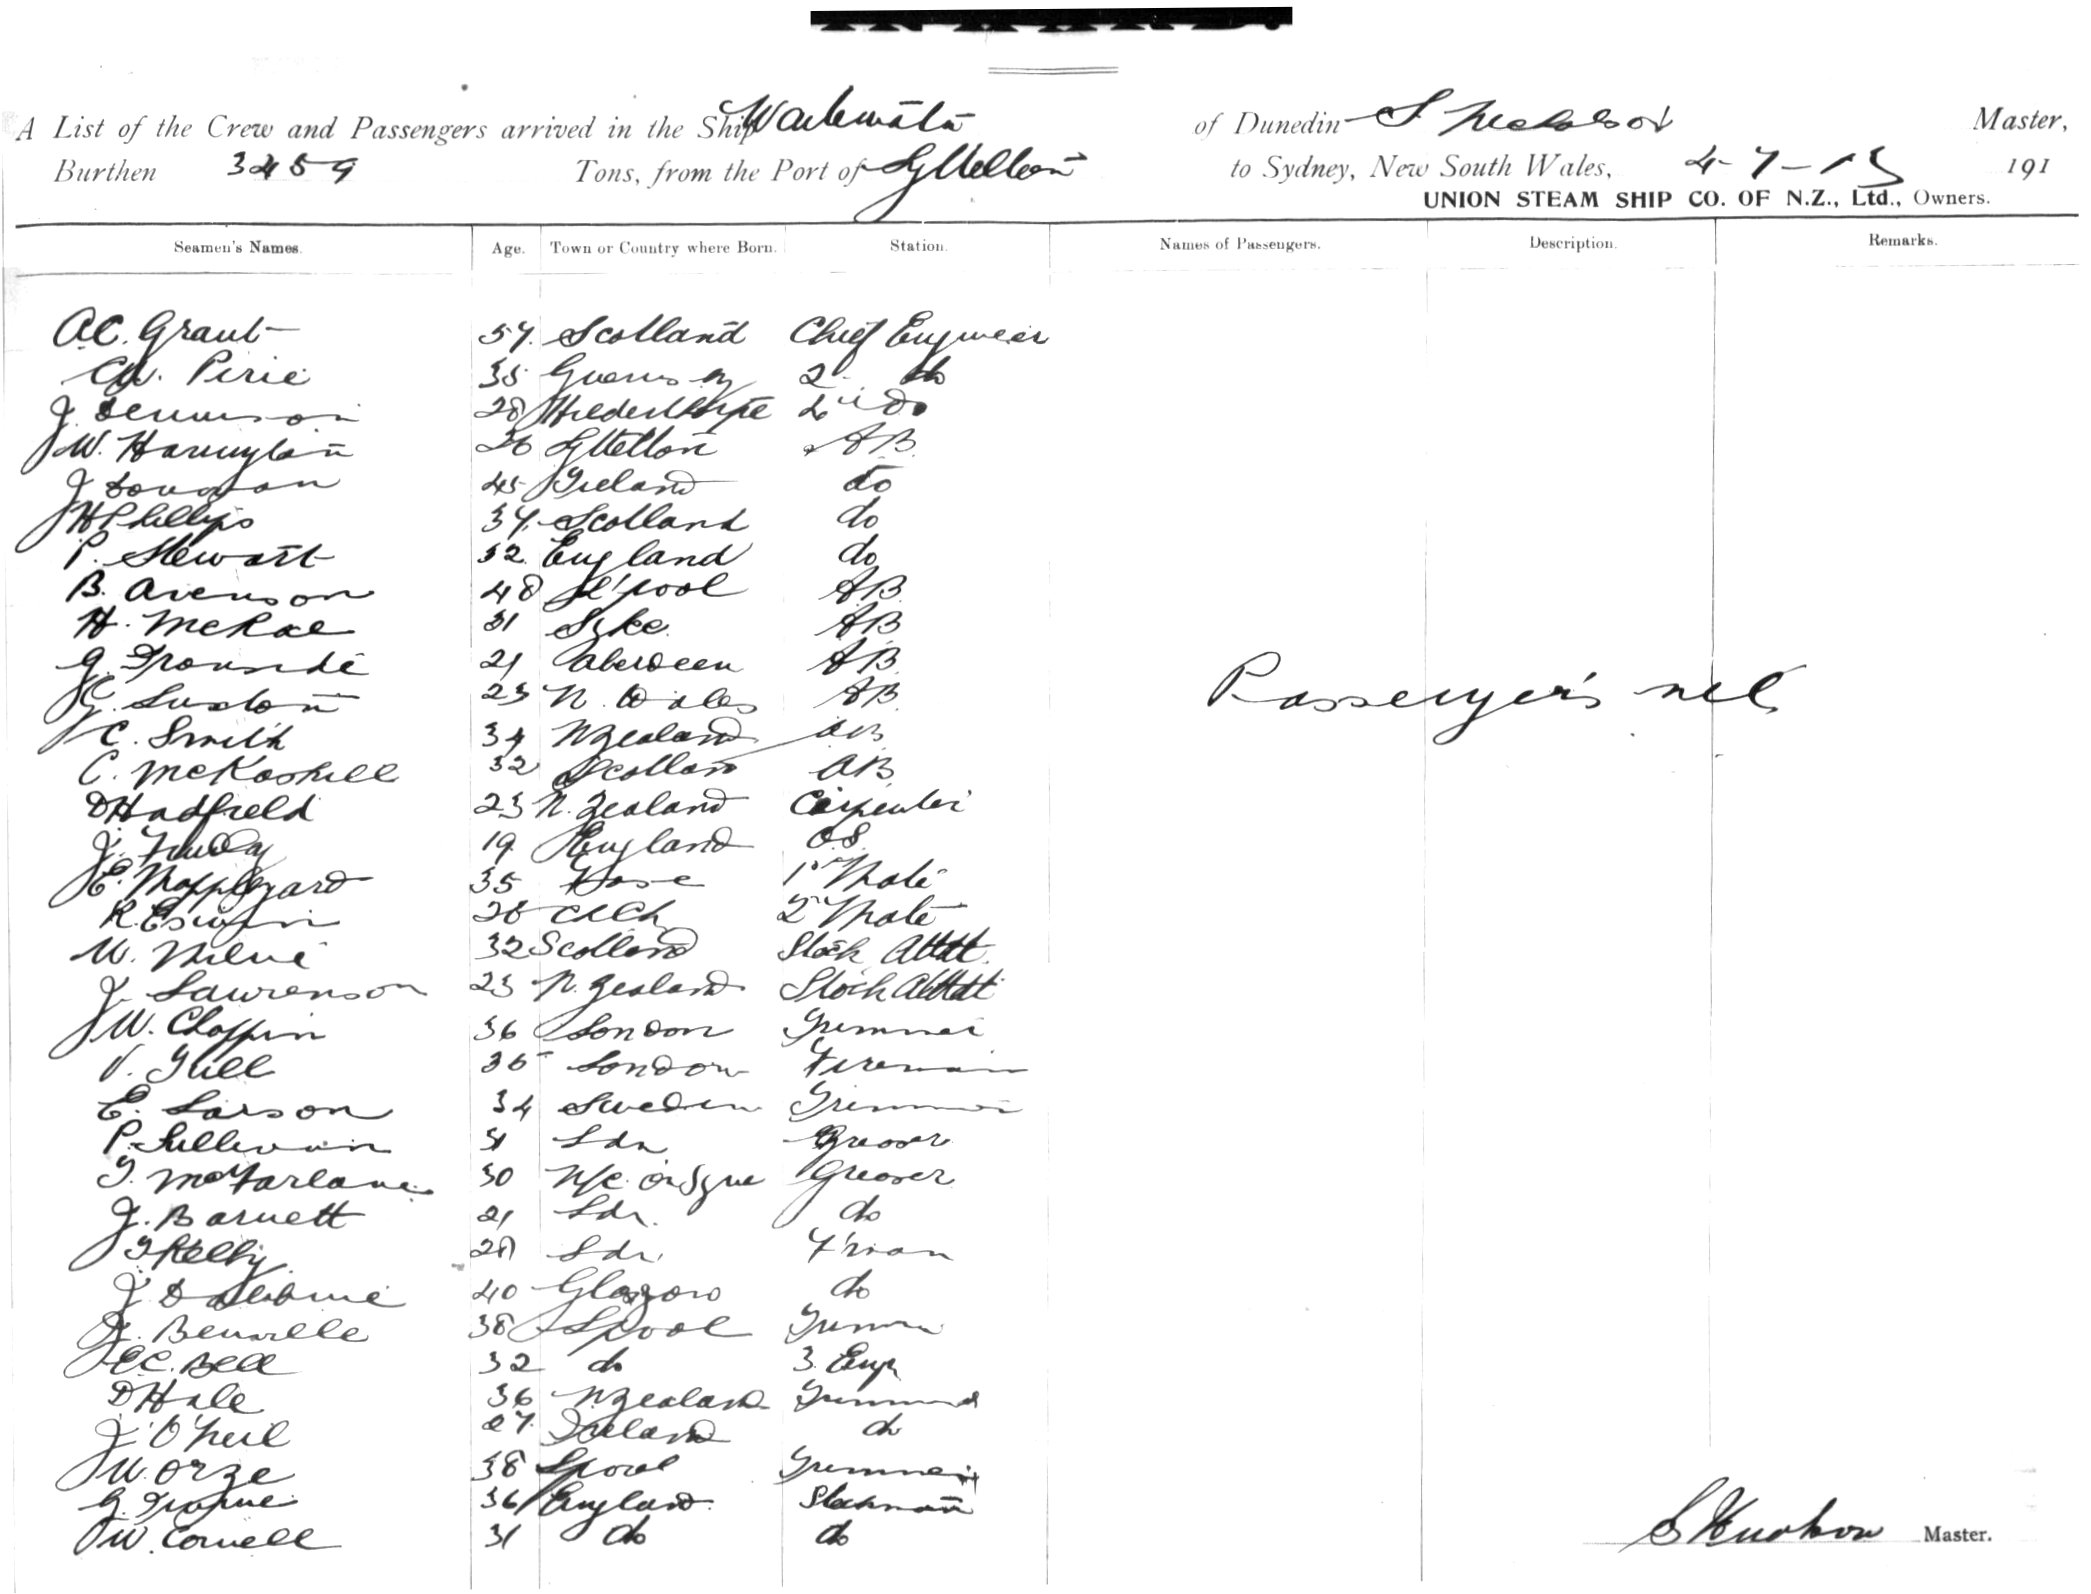 A List of the Crew and Passengers arrived in the Ship Waitemata of Dunedin S. Master,
Burthen 3459 Tons, from the Port of Lyttelton to Sydney, New South Wales, 4-7-13 191
UNION STEAM SHIP CO. OF N.Z., Ltd., Owners.
Seamen's Names. Age. Town or Country where Born. Station. Names of Passengers. Description. Remarks.
A.C. Grant 57 Scotland Chief Engineer
C.W. Pirie 35 Guernsey 2 do
J. Dennison 28 4th do
W. Harrington 26 Lyttelton AB
J. 45 Ireland do
H Phillips 37 Scotland do
P. Stewart 32 England do
B. Arenson 48 L'pool AB
H. McRae 31 AB
G. Ironside 21 Aberdeen AB
G. Luxton 23 N. Wales AB
C. Smith 34 N Zealand AB
C. McKaskill 32 Scotland AB
D Hadfield 23 N. Zealand Carpenter
J. 19 England O.S.
E. Mapplezard 35 1st Mate
R. 28 ChCh 2nd Mate
W. Milne 32 Scotland Stock Attdt.
J. Lawrenson 23 N. Zealand Stock Attdt
W. Choffin 36 London Trimmer
V. Gill 36 London Fireman
E. Larson 34 Sweden Trimmer
P. Sullivan 31 Ldn Greaser
T. McFarlane 30 N/C. on Tyne Greaser
J. Barnett 21 Ldn. do
T Kelly 28 Ldn. F'man
J. 40 Glasgow do
J. 38 L'pool Trimmer
E C. Bell 32 do 3. Engr
D Hale 36 N Zealand Trimmer
J. O'Neil 27 Ireland do
W. Orze 38 Lpool Trimmer
G. 36 England Stockman
W. Cornell 31 do do
Passengers nil
S Master.